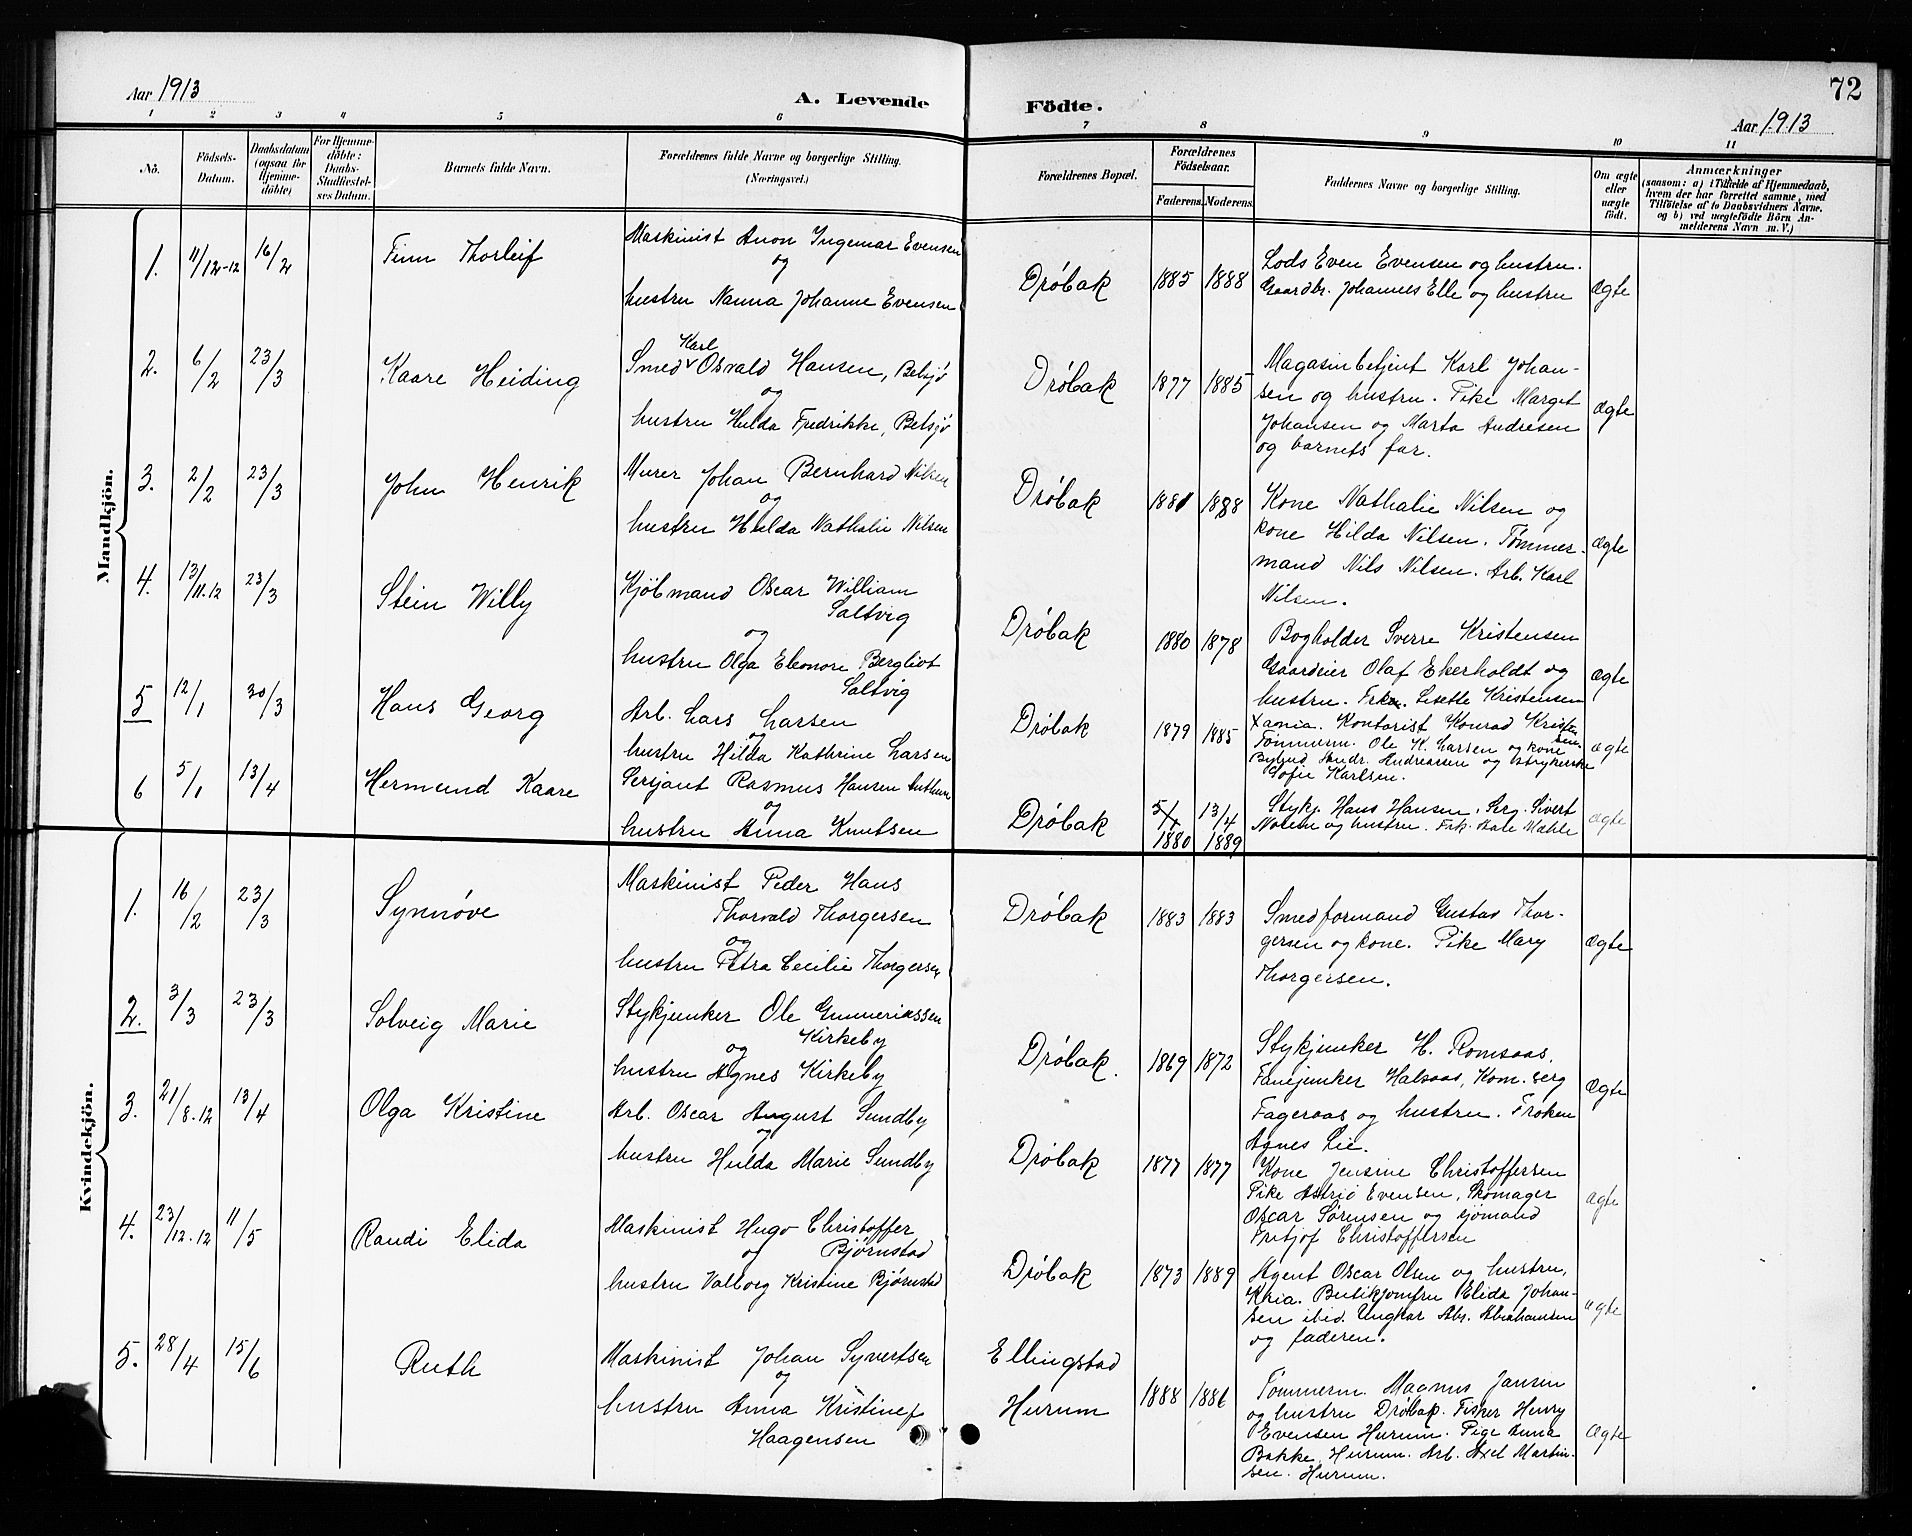 Aar 1913
A. Levende
Födte.
72
Aar 1913
1 2 3 4 5 6 7 8 9 10 11
No.
Födsels-
Datum.
Daabsdatum
(ogsaa for
Hjemme-
döbte)
For Hjemme-
döbte:
Daabs-
Stadfæstel-
ses Datum.
Barnets fulde Navn.
Forældrenes fulde Navne og borgerlige Stilling.
(Næringsvei.)
Forældrenes Bopæl.
Forældrenes
Födselsaar.
Faderens. Moderens.
Faddernes Navne og borgerlige Stilling.
Om ægte
eller
uægte
födt.
Anmærkninger
(saasom: a) i Tilfælde af Hjemmedaab,
hvem der har forrettet samme, med
Tilföielse af to Daabsvidners Navne,
og b) ved uægtefödte Börn An-
melderens Navn m. V.)
Mandkjön.
1. 11/12-12 16/2 Finn Thorleif
Maskinist Anon Ingemar Evensen
og
hustru Nanna Johanne Evensen
Drøbak 1885 1888
Lods Even Evensen og hustru.
Gaardbr. Johannes Elle og hustru
Ægte
2. 6/2 23/3 Kaare Heiding
Karl
Smed Osvald Hansen, Belsjø
og
hustru Hulda Fredrikke, Belsjø
Drøbak 1877 1885
Magasinbetjent Karl Johan-
sen og hustru. Pike Marget
Johansen og Marta Andresen
og barnets far.
Ægte
3. 2/2 23/3 John Henrik
Murer Johan Bernhard Nilsen
og
hustru Hulda Nathalie Nilsen
Drøbak 1881 1888
Kone Nathalie Nilsen og
kone Hilda Nilsen. Tømmer-
mand Nils Nilsen. Arb. Karl
Nilsen.
Ægte
4. 13/11.12 23/3 Stein Willy
Kjøbmand Oscar William
Saltvig
og
hustru Olga Eleonore Bergliot
Saltvig
Drøbak 1880 1878
Bogholder Sverre Kristensen
Gaardeier Olaf Ekerholdt og
hustru. Frkn. Lisette Kristensen
Xania. Kontorist Konrad Kristen
sen.
Ægte
5 12/1 30/3 Hans Georg
Arb. Lars Larsen
og
hustru Hilda Kathrine Larsen
Drøbak 1879 1885
Tømmerm. Ole K. Larsen og kone
Bybud Andr. Andreassen og strykerske
Sofie Karlsen.
Ægte
6 5/1 13/4 Hermund Kaare
Serjant Rasmus Hansen
og
hustru Anna Knutsen
Drøbak 5/1 13/4
1880 1889
Stykj. Hans Hansen, Serg. Sivert
og hustru. Frk. Mæhle
Ægte
Kvindekjön.
1. 16/2 23/3 Synnøve
Maskinist Peder Hans
Thorvald Thorgersen
og
hustru Petra Cecilie Thorgersen
Drøbak 1883 1883
Smedformand Gustav Thor-
gersen og kone. Pike Mary
Thorgersen.
Ægte
2. 3/3 23/3 Solveig Marie
Stykjunker Ole Gunneriussen
Kirkeby
og
hustru Agnes Kirkeby
Drøbak. 1869 1872
Stykjunker H. Romsaas,
Fanejunker Halsaas, Kom. serg
Fageraas og hustru. Frøken
Agnes Lie.
Ægte
3. 21/8.12 13/4 Olga Kristine
Arb. Oscar August Sundby
og
hustru Hulda Marie Sundby
Drøbak 1877 1877
Kone Jensine Christoffersen
Pike Astrid Evensen, Skomager
Oscar Sørensen og sjømand
Fritjof Christoffersen
ægte
4. 23/12.12 11/5 Randi Elida
Maskinist Hugo Christoffer
og Bjørnstad
hustru Valborg Kristine Bjørnstad
Drøbak 1873 1889
Agent Oscar Olsen og hustru,
Kria. Butikjomfru Elida Johan-
sen ibid. Ungkar Abr. Abrahamsen
og faderen.
ægte
5. 28/4 15/6 Ruth
Maskinist Johan Syvertsen
og
hustru Anna Kristine f
Haagensen
Ellingstad
Hurum
1888 1886
Tømmerm. Magnus Jansen
og hustru Drøbak. Fisker Henry
Evensen Hurum. Pige Anna
Bakke, Hurum. Arb. Axel Martin-
sen. Hurum.
Ægte